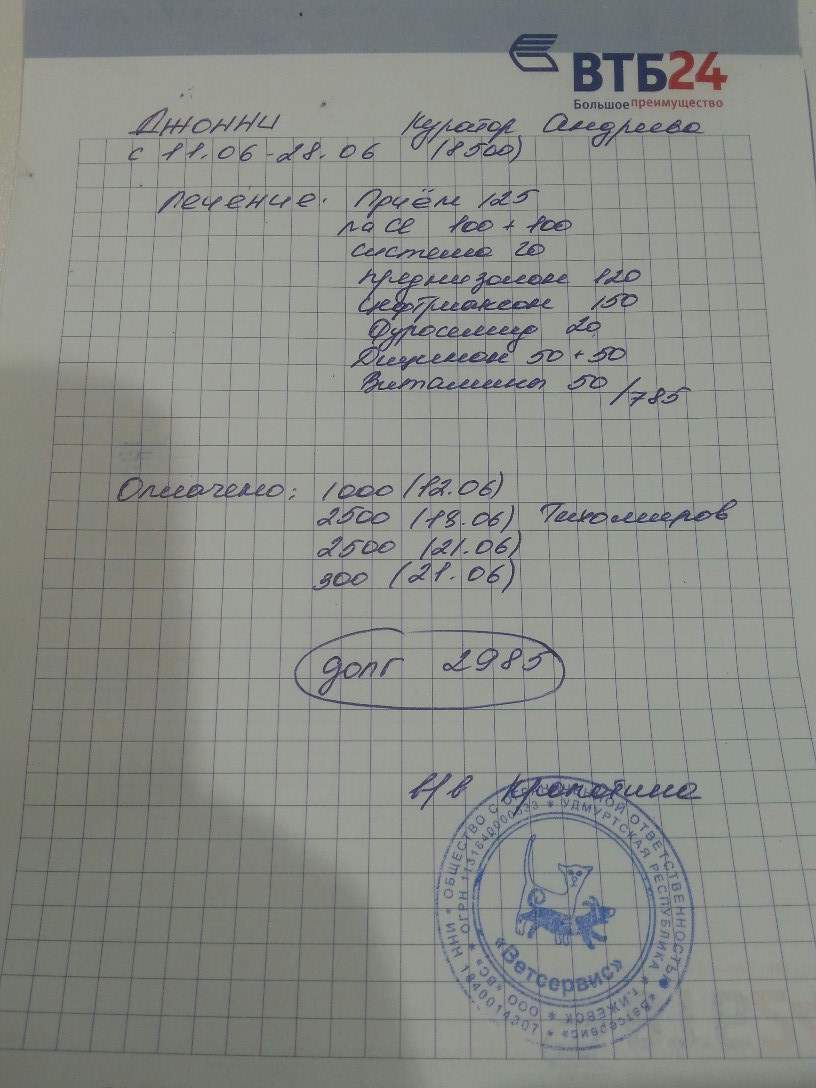 ВТБ24
Большое преимущество
Джонни Куратор Андреева
с 11.06-28.06 (8500)
Лечение: Приём 125
100 + 100
система 20
преднизолон 120
Цефтриаксон 150
Фуросемид 20
Дицинон 50 + 50
Витамины 50 /785
Оплачено: 1000 (12.06)
2500 (18.06) Тихомиров
2500 (21.06)
300 (21.06)
долг 2985
в/в Кропотина
ОБЩЕСТВО С ОГРАНИЧЕННОЙ ОТВЕТСТВЕННОСТЬЮ «Ветсервис» * ИНН 1840014307
ОГРН 1131840000533 * УДМУРТСКАЯ РЕСПУБЛИКА * г.ИЖЕВСК * ООО «ВС» *
«Ветсервис»